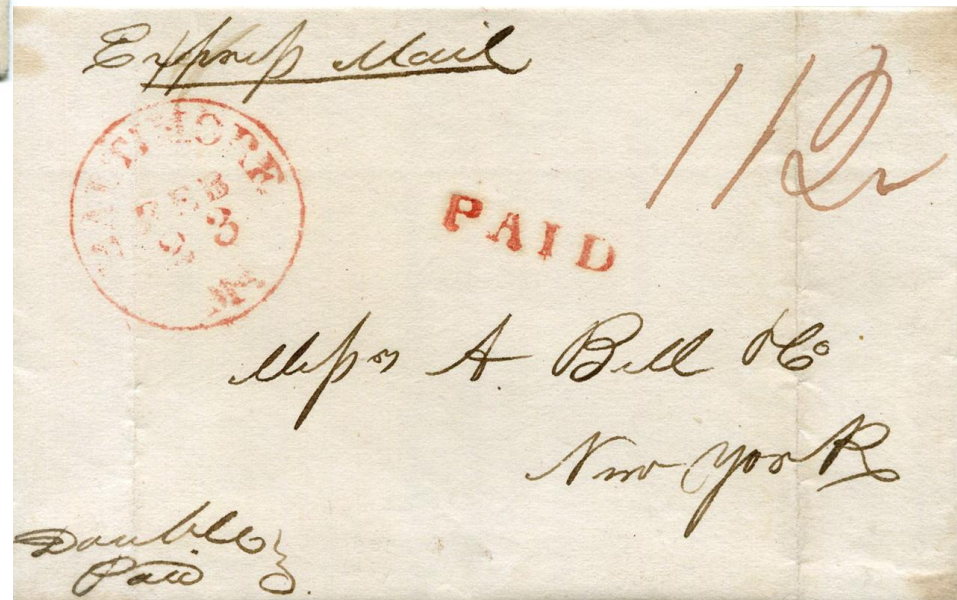 Express Mail
112
BALTIMORE
FEB
23
Md
PAID
Messrs A Bell & Co
New York
Double
Paid